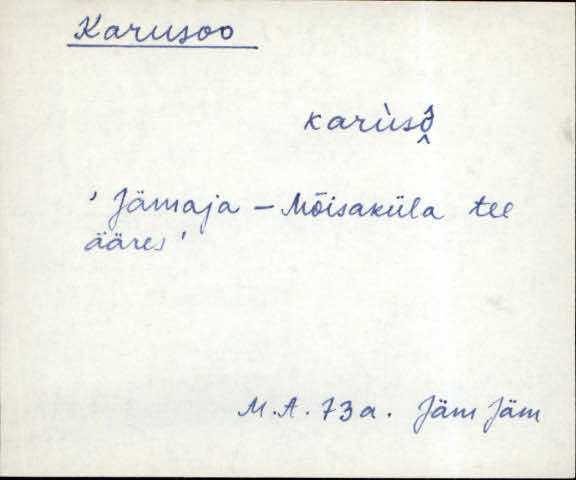 Karusoo
karùsô̭
' Jämaja - Mõisaküla tee
ääres '
M.A. 73 a. Jäm Jäm